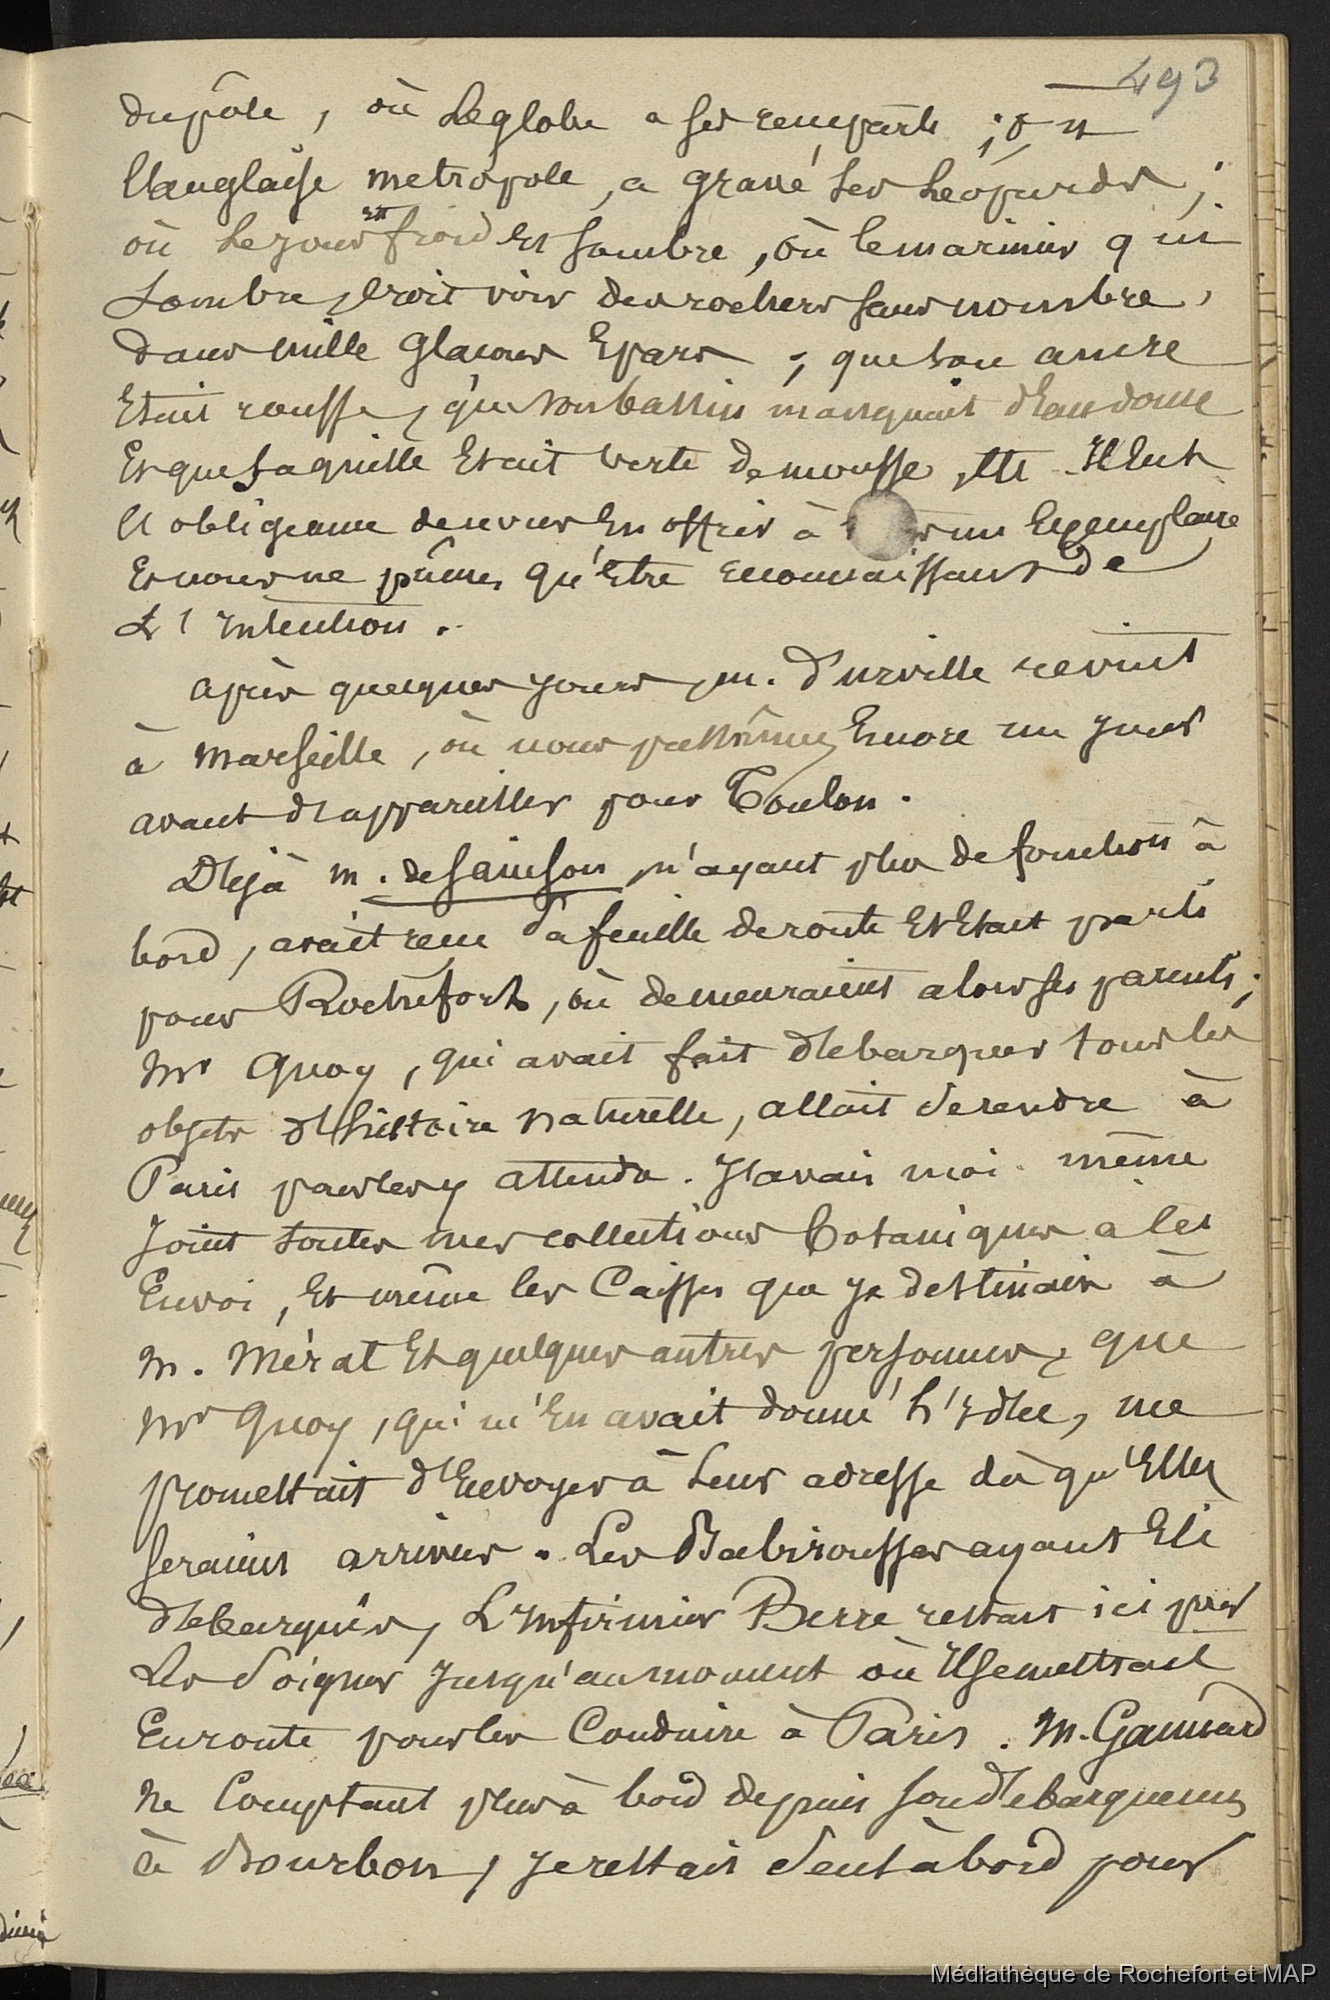 493
du pôle, où le globe a ses remparts ; où
l'anglaise metropole, a gravé ses Léopards ;
où le jour est froid et sombre, où le marinier qui
sombre, croit voir des rochers sans nombre,
dans mille glacons épars ; que son ancre
était rousse, que son bassin manquait d'eau douce
et que sa quille était verte de mousse, etc. Il eut
l'obligeance de nous en offrir à un exemplaire
et nous ne pûmes qu'être reconnaissants de
L'intention.
après quelques jours, m. d'urville revint
à marseille, où nous passâmes encore un jour
avant d'appareiller pour Toulon.
Déjà m. de Sainson, n'ayant plus de fonction à
bord, avait reçu sa feuille de route et était parti
pour Rochefort, où demeuraient alors ses parents ;
Mr Quoy, qui avait fait débarquer tous les
objets d'histoire naturelle, allait se rendre à
Paris pour les y attendre. J'avais moi-même
joint toutes mes collections botaniques à cet
Envoi, et même les Caisses que je destinais à
m. Mérat et quelques autres personnes, que
Mr Quoy, qui m'en avait donné l'idée, me
promettait d'envoyer à leur adresse dès qu'elles
seraient arrivées. Les Babiroussas ayant été
débarqués, L'infirmier Berre restait ici pour
Les soigner jusqu'au moment où il se mettrait
en route pour les Conduire à Paris. M. Gaimard
ne Comptant plus à bord depuis son débarquement
à Bourbon, je restais seul à bord pour
Médiathèque de Rochefort et MAP